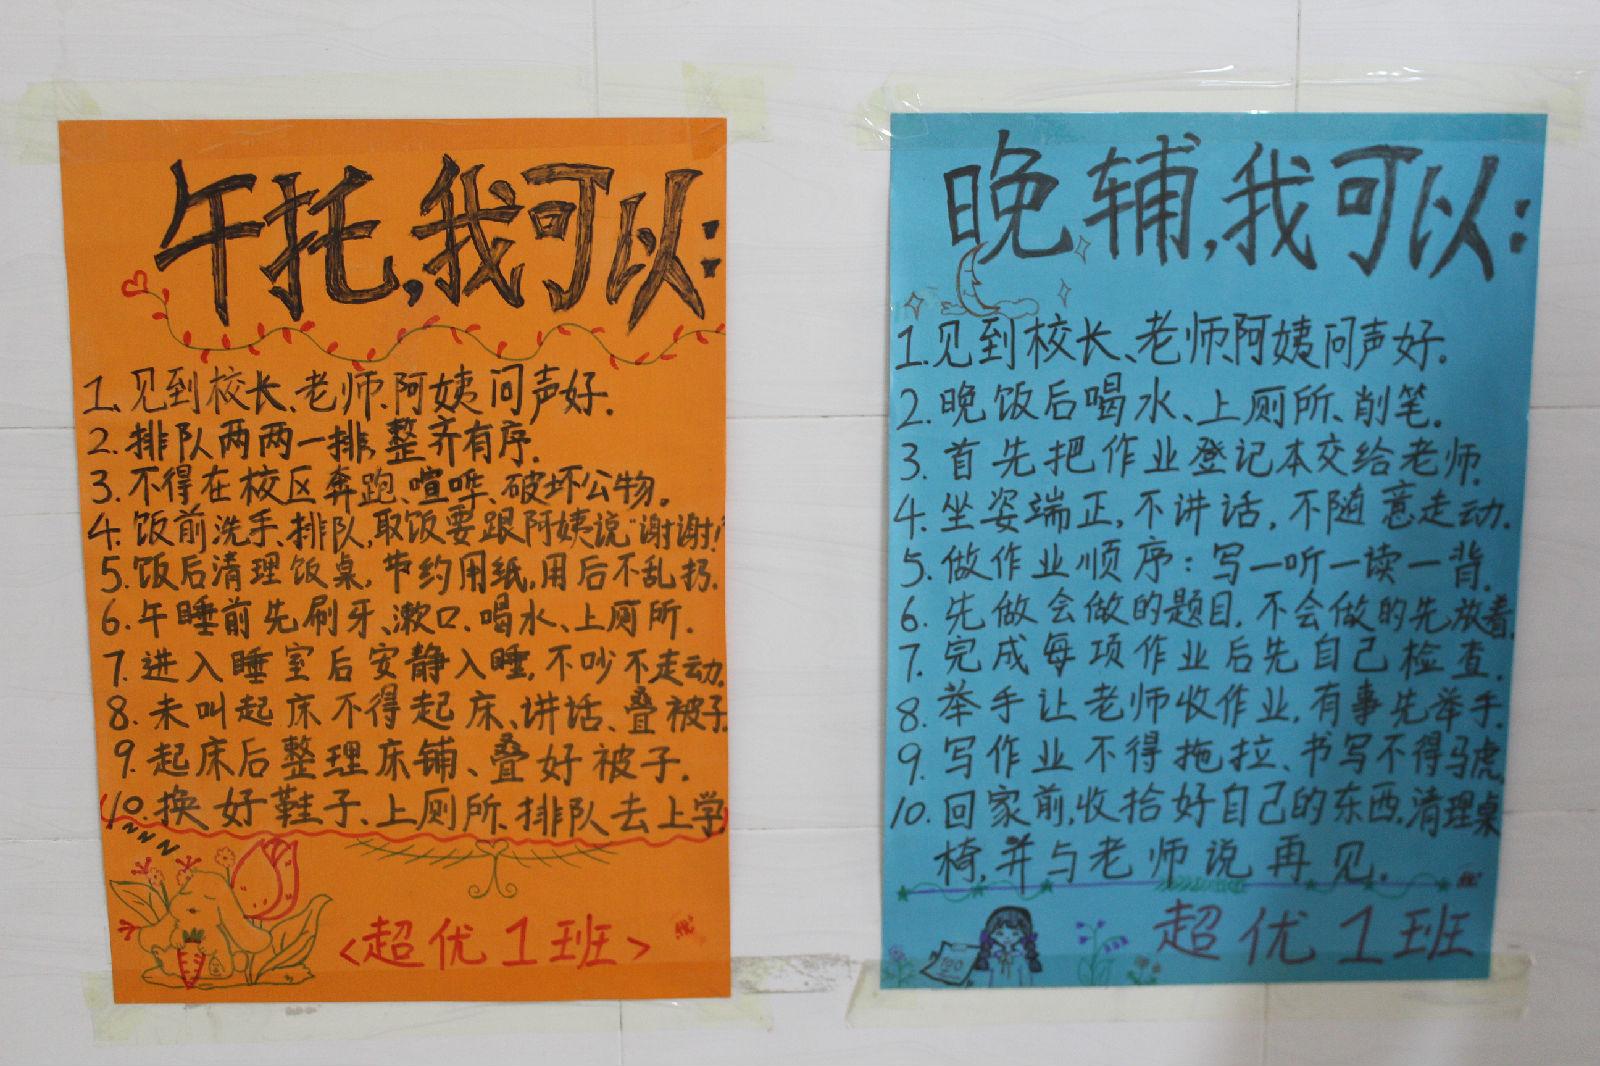 午托,我可以:
1.见到校长、老师、阿姨问声好.
2.排队两两一排,整齐有序.
3.不得在校区奔跑、喧哗、破坏公物。
4.饭前洗手、排队,取饭要跟阿姨说"谢谢!"
5.饭后清理饭桌,节约用纸,用后不乱扔.
6.午睡前先刷牙、漱口、喝水、上厕所.
7.进入睡室后安静入睡,不吵不走动.
8.未叫起床不得起床、讲话、叠被子.
9.起床后整理床铺、叠好被子.
10.换好鞋子、上厕所、排队去上学
zzzz
<超优1班>
晚辅,我可以:
1.见到校长、老师、阿姨问声好.
2.晚饭后喝水、上厕所、削笔.
3.首先把作业登记本交给老师.
4.坐姿端正,不讲话,不随意走动.
5.做作业顺序:写一听一读一背.
6.先做会做的题目,不会做的先放着.
7.完成每项作业后先自己检查.
8.举手让老师收作业,有事先举手.
9.写作业不得拖拉、书写不得马虎.
10.回家前,收拾好自己的东西,清理桌
椅,并与老师说再见.
超优1班